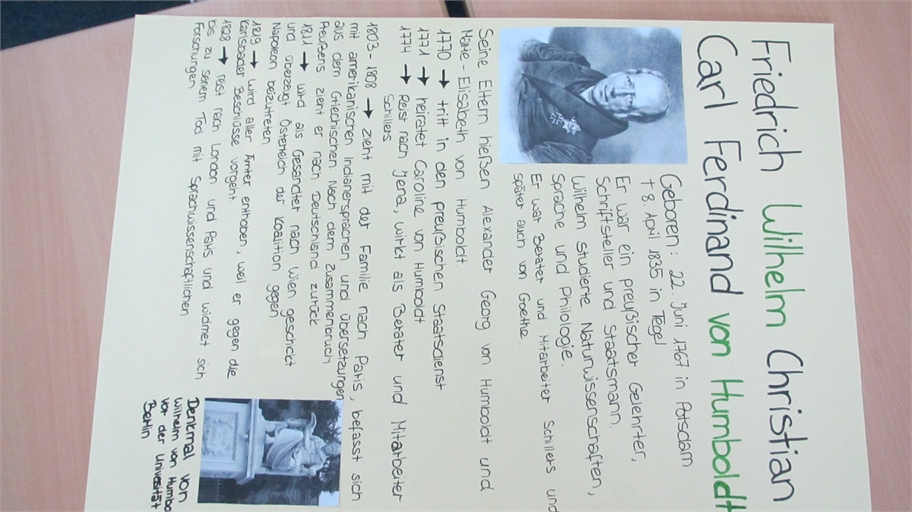 Friedrich Wilhelm Christian
Carl Ferdinand von Humboldt
Geboren: 22. Juni 1767 in Potsdam
† 8. April 1835 in Tegel
Er war ein preußischer Gelehrter,
Schriftsteller und Staatsmann.
Wilhelm studierte Naturwissenschaften,
Sprache und Philologie.
Er war Berater und Mitarbeiter Schillers und
später auch von Goethe.
Seine Eltern hießen Alexander Georg von Humboldt und
Marie-Elisabeth von Humboldt
1770 → tritt in den preußischen Staatsdienst
1771 → heiratet Caroline von Humboldt
1774 → Reist nach Jena, wirkt als Berater und Mitarbeiter
Schillers
1803-1808 → zieht mit der Familie nach Paris, befasst sich
mit amerikanischen Indianersprachen und Übersetzungen
aus dem Griechischen. Nach dem Zusammenbruch
Preußens zieht er nach Deutschland zurück
1811 → wird als Gesandter nach Wien geschickt
und überzeugt Österreich der Koalition gegen
Napoleon beizutreten
1819 → wird aller Ämter enthoben, weil er gegen die
Karlsbader Beschlüsse vorgeht.
1828 → reist nach London und Paris und widmet sich
bis zu seinem Tod mit Sprachwissenschaftlichen
Forschungen
Denkmal von
Wilhelm von Humbo
vor der Universität
Berlin